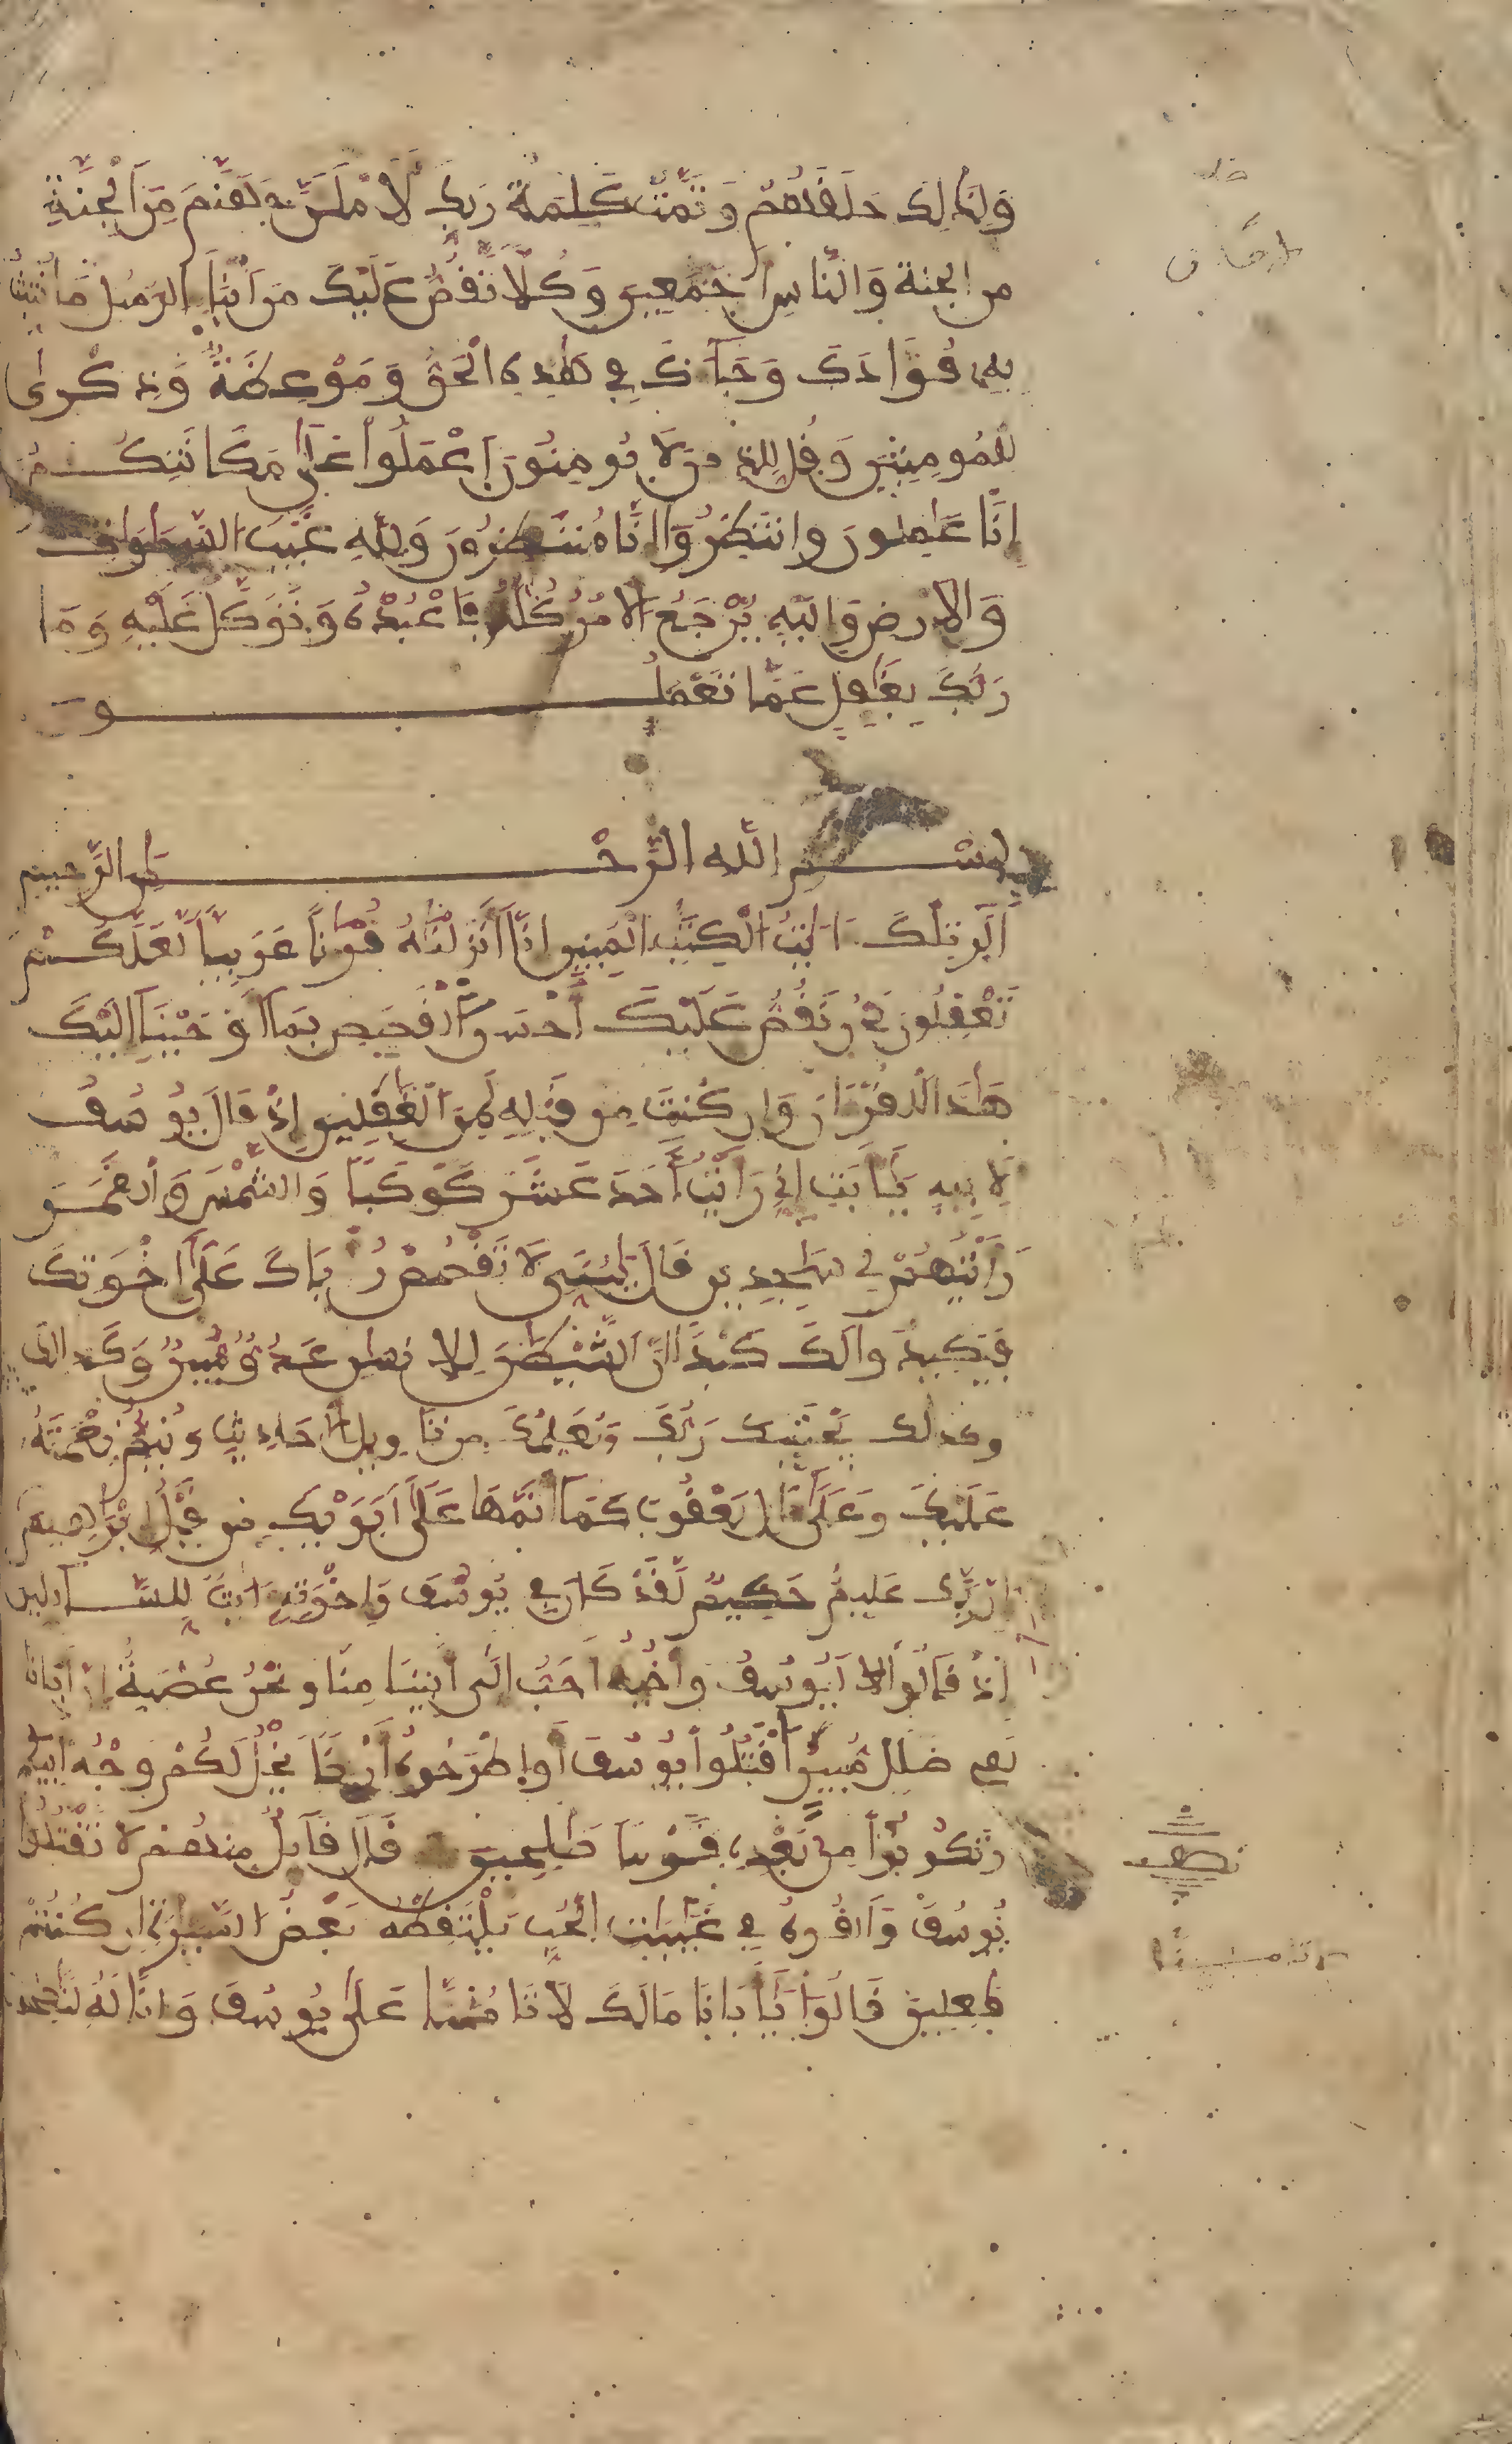 وَلِذَٰلِكَ خَلَقَهُمْ وَتَمَّتْ كَلِمَةُ رَبِّكَ لَأَمْلَأَنَّ جَهَنَّمَ مِنَ الْجِنَّةِ
من الجنة وَالنَّاسِ أَجْمَعِينَ وَكُلًّا نَّقُصُّ عَلَيْكَ مِنْ أَنبَاءِ الرُّسُلِ مَا نُثَبِّتُ
بِهِ فُؤَادَكَ وَجَاءَكَ فِي هَٰذِهِ الْحَقُّ وَمَوْعِظَةٌ وَذِكْرَىٰ
لِلْمُومِنِينَ وَقُل لِّلَّذِينَ لَا يُومِنُونَ اعْمَلُوا عَلَىٰ مَكَانَتِكُمْ
إِنَّا عَٰمِلُونَ وانتَظِرُوا إِنَّا مُنتَظِرُونَ وَلِلَّهِ غَيْبُ السَّمَٰوَٰتِ
وَالأرضِ وَإِلَيْهِ يُرْجَعُ الأَمْرُ كُلُّهُ فَاعْبُدْهُ وَتَوَكَّلْ عَلَيْهِ وَمَا
رَبُّكَ بِغَٰفِلٍ عَمَّا تَعْمَلُونَ
بِسْمِ اللَّهِ الرَّحْمَٰنِ الرَّحِيمِ
الٓر تِلْكَ ءَايَٰتُ الْكِتَٰبِ الْمُبِينِ إِنَّا أَنزَلْنَٰهُ قُرْءَٰنًا عَرَبِيًّا لَّعَلَّكُمْ
تَعْقِلُونَ نَحْنُ نَقُصُّ عَلَيْكَ أَحْسَنَ الْقَصَصِ بِمَا أَوْحَيْنَا إِلَيْكَ
هَٰذَا الْقُرْءَانَ وَإِن كُنتَ مِن قَبْلِهِ لَمِنَ الْغَٰفِلِينَ إِذْ قَالَ يُوسُفُ
لِأَبِيهِ يَٰأَبَتِ إِنِّي رَأَيْتُ أَحَدَ عَشَرَ كَوْكَبًا وَالشَّمْسَ وَالْقَمَرَ
رَأَيْتُهُمْ لِي سَٰجِدِينَ قَالَ يَٰبُنَيِّ لَا تَقْصُصْ رُءْيَاكَ عَلَىٰ إِخْوَتِكَ
فَيَكِيدُوا لَكَ كَيْدًا إِنَّ الشَّيْطَٰنَ لِلإنسَٰنِ عَدُوٌّ مُّبِينٌ وَكَذَٰلِكَ
وكذلك يَجْتَبِيكَ رَبُّكَ وَيُعَلِّمُكَ مِن تَاوِيلِ الأَحَادِيثِ وَيُتِمُّ نِعْمَتَهُ
عَلَيْكَ وَعَلَىٰ ءَالِ يَعْقُوبَ كَمَا أَتَمَّهَا عَلَىٰ أَبَوَيْكَ مِن قَبْلُ إِبْرَٰهِيمَ
إِنَّ رَبَّكَ عَلِيمٌ حَكِيمٌ لَّقَدْ كَانَ فِي يُوسُفَ وَإِخْوَتِهِ ءَايَٰتٌ لِّلسَّائِلِينَ
إِذْ قَالُوا لَيُوسُفُ وَأَخُوهُ أَحَبُّ إِلَىٰ أَبِينَا مِنَّا وَنَحْنُ عُصْبَةٌ إِنَّ أَبَانَا
لَفِي ضَلَٰلٍ مُّبِينٍ اقْتُلُوا يُوسُفَ أَوِ اطْرَحُوهُ أَرْضًا يَخْلُ لَكُمْ وَجْهُ أَبِيكُمْ
وَتَكُونُوا مِن بَعْدِهِ قَوْمًا صَٰلِحِينَ قَالَ قَائِلٌ مِّنْهُمْ لَا تَقْتُلُوا
نصف
يُوسُفَ وَأَلْقُوهُ فِي غَيَٰبَٰتِ الْجُبِّ يَلْتَقِطْهُ بَعْضُ السَّيَّارَةِ إِن كُنتُمْ
فَٰعِلِينَ قَالُوا يَٰأَبَانَا مَالَكَ لَا تَامَ۫نَّا عَلَىٰ يُوسُفَ وَإِنَّا لَهُ لَنَٰصِحُونَ